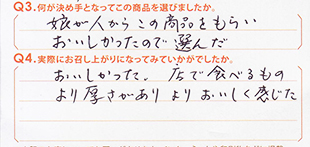 Q3.何が決め手となってこの商品を選びましたか。
娘が人からこの商品をもらい
おいしかったので選んだ
Q4.実際にお召し上がりになってみていかがでしたか。
おいしかった、店で食べるもの
より厚さがありよりおいしく感じた